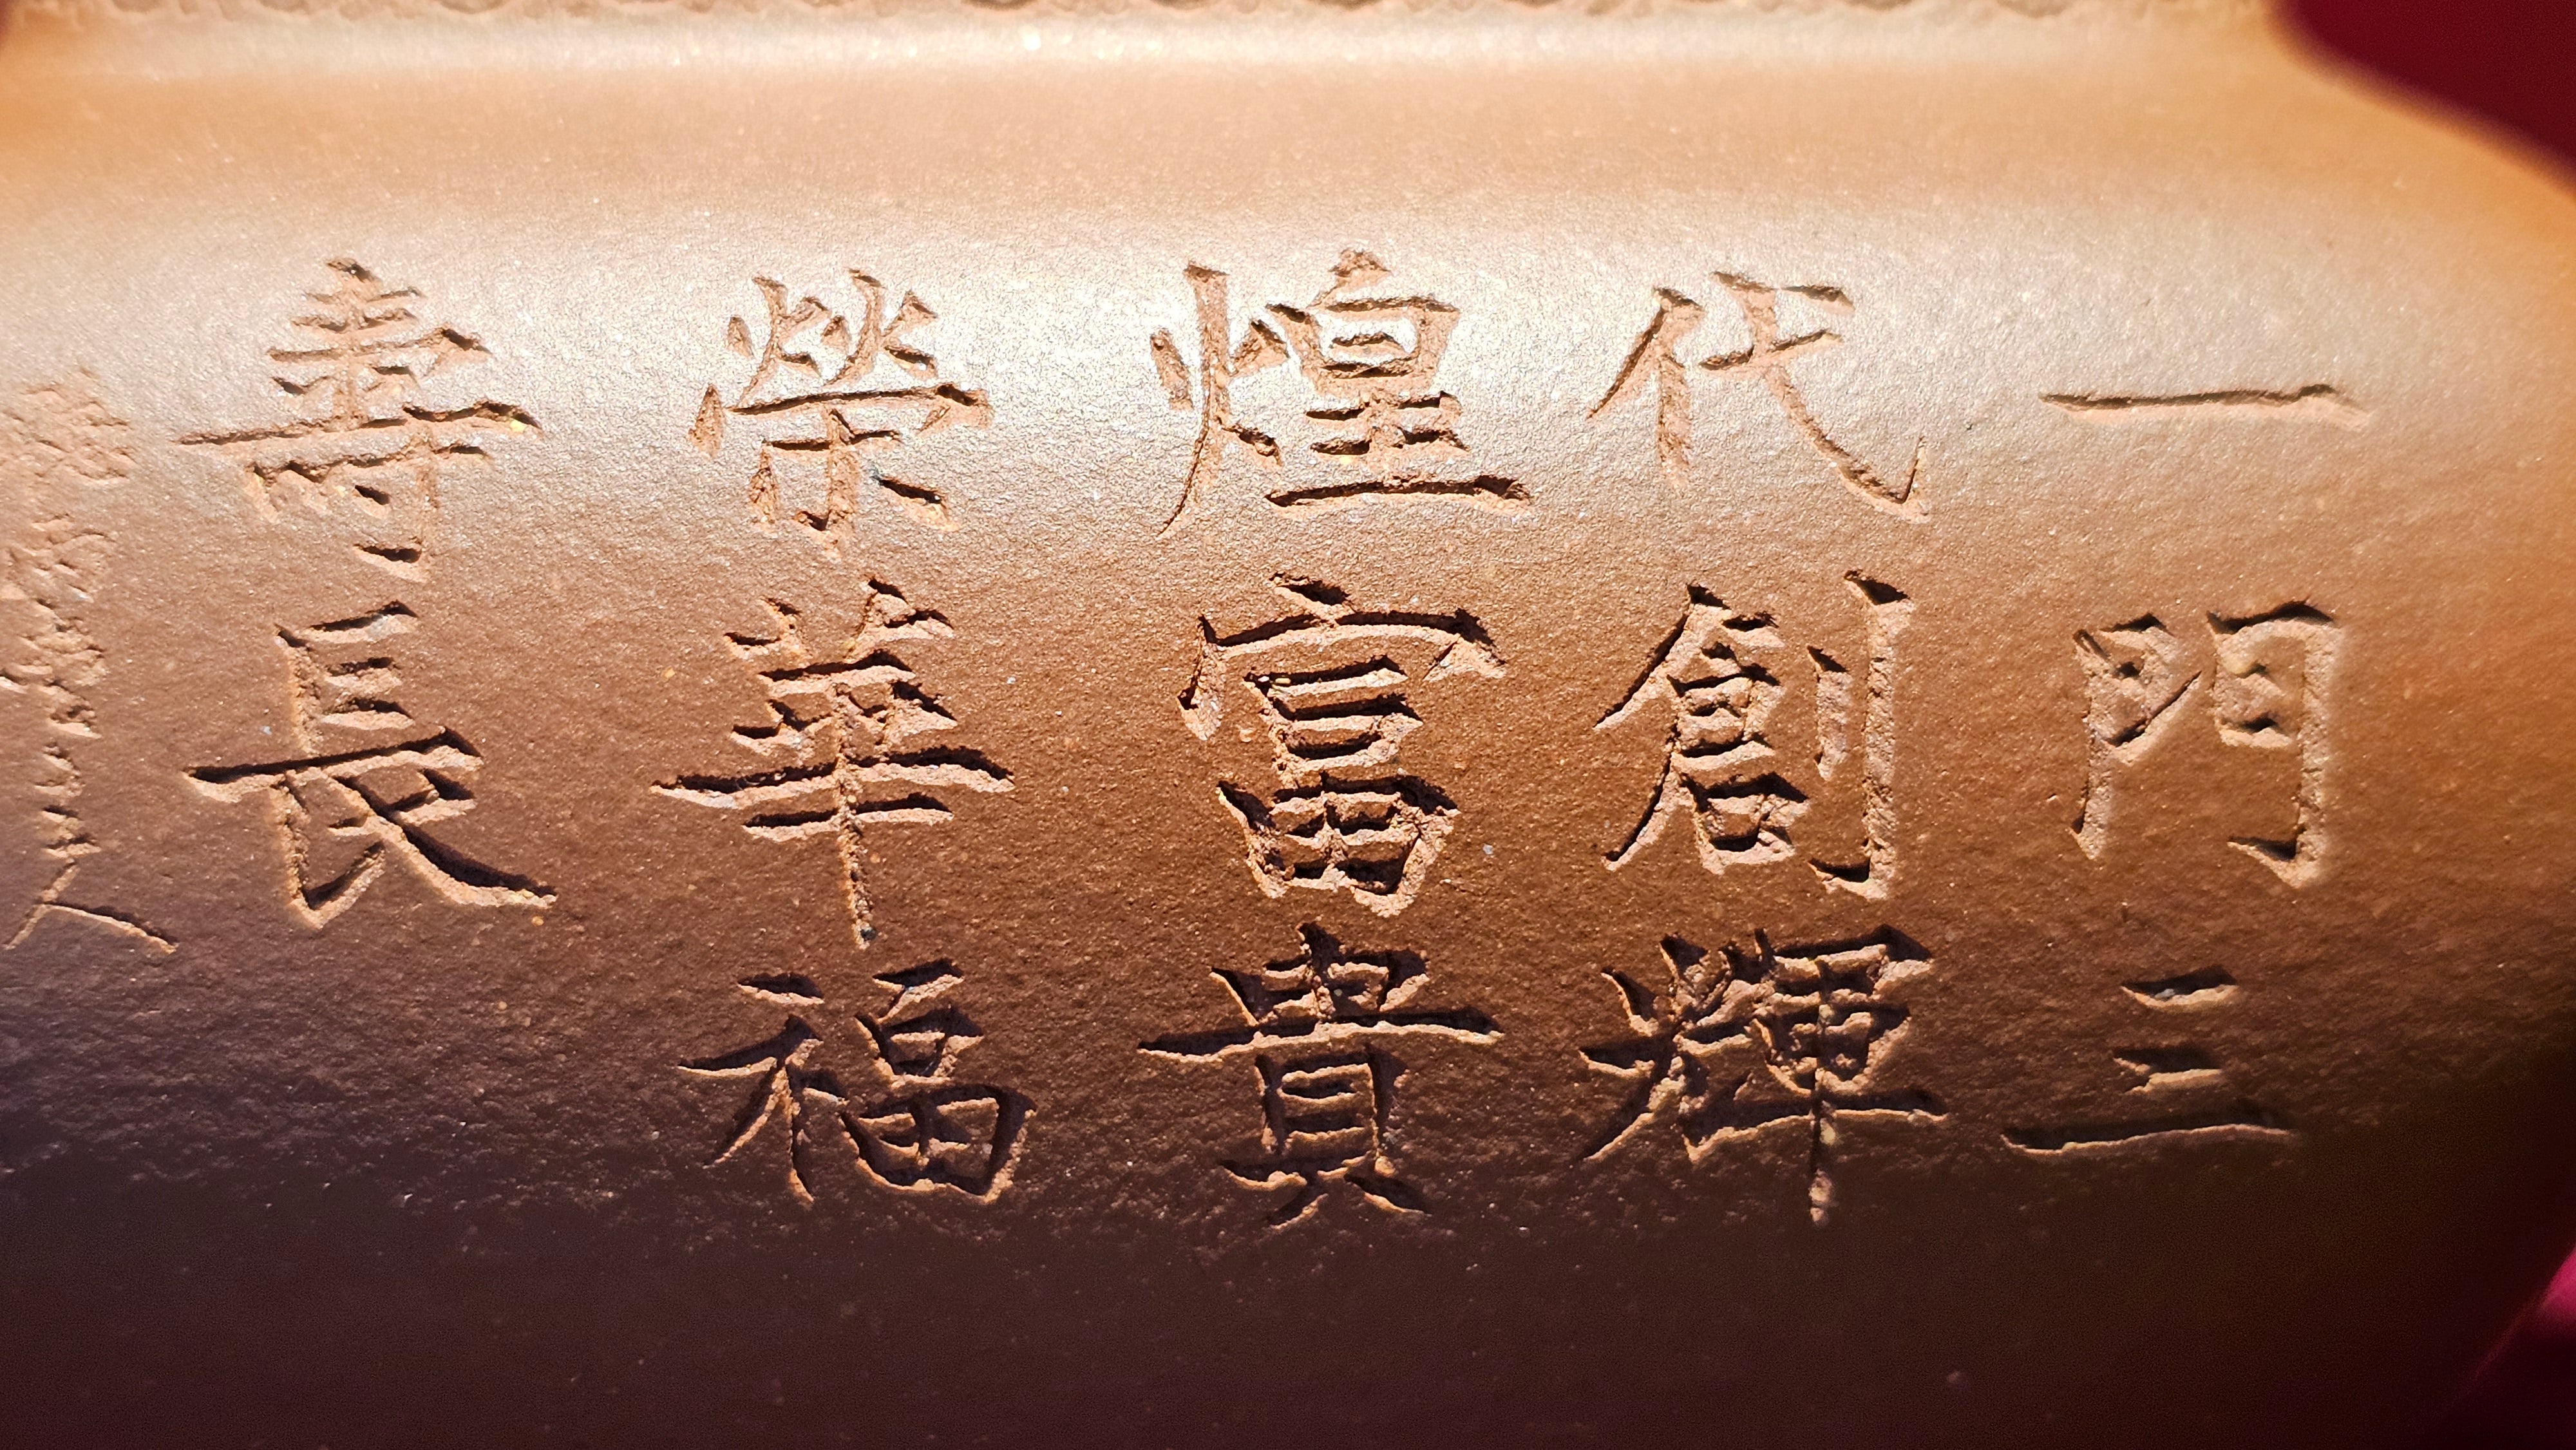 一門三
代創輝
煌富貴
榮華福
壽長
人